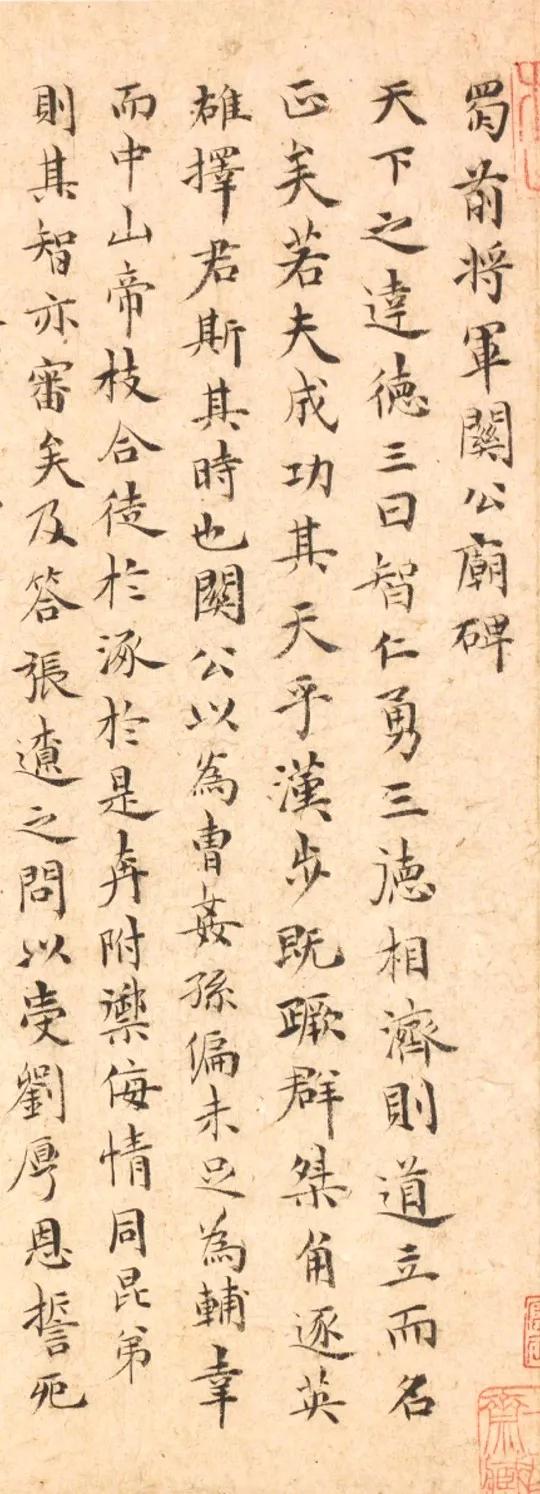 蜀前将軍關公廟碑
天下之達德三曰智仁勇三德相濟則道立而名
正矣若夫成功其天乎漢步既蹶群桀角逐英
雄擇君斯其時也關公以為曹姦孫偏未足為輔幸
而中山帝枝合徒於涿於是奔附禦侮情同昆弟
則其智亦審矣及答張遼之問以受劉厚恩誓死